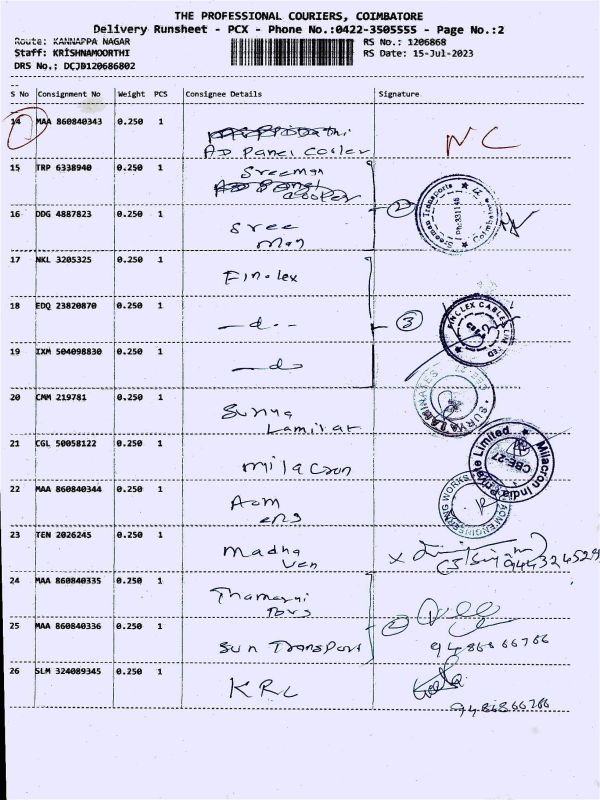 THE PROFESSIONAL COURIERS, COIMBATORE
Delivery Runsheet - PCX - Phone No.:0422-3505555 - Page No.:2
Route: KANNAPPA NAGAR
RS No.: 1206868
Staff: KRISHNAMOORTHI
RS Date: 15-Jul-2023
DRS No.: DCJB120686802
S No Consignment No Weight PCS Consignee Details Signature
14 MAA 860840343 0.250 1 AD Panel Cooler NC
15 TRP 6338940 0.250 1 Sreeman
16 DDG 4887823 0.250 1 Sree man 2
Sreeman Transports Coimbatore
17 NKL 3205325 0.250 1 Finolex
18 EDQ 23820870 0.250 1 —do— 3
FINOLEX CABLES LIMITED
19 IXM 504098830 0.250 1 —do—
20 CMM 219781 0.250 1 Surya
SURYA LAMINATES
21 CGL 50058122 0.250 1 milacron
Milacron India Private Limited CBE-27
22 MAA 860840344 0.250 1 Aom eng
AOM ENGINEERING WORKS
23 TEN 2026245 0.250 1 madha
24 MAA 860840335 0.250 1
25 MAA 860840336 0.250 1 Sun Transport 9486866766
26 SLM 324089345 0.250 1 KRL